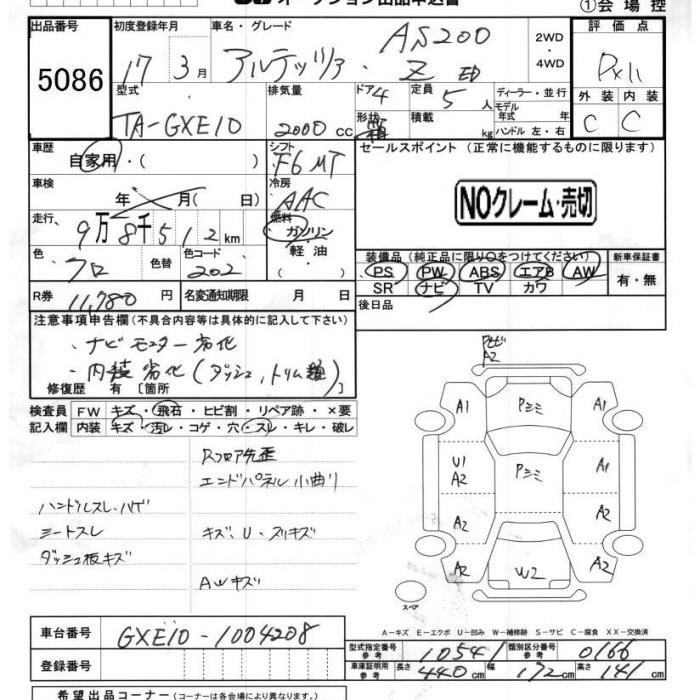 オークション出品申込書
①会場控
出品番号 初度登録年月 車名・グレード 2WD ・4WD 評価点
5086 17 3月 アルテッツァ AS200 Z ED
型式 排気量 ドア 4 定員 5人 ディーラー・並行 外装 内装
TA-GXE10 2000cc 形状 箱 積載 kg モデル年式 年式 ハンドル 左・右 C C
車歴 自家用・( ) シフト F6 MT セールスポイント (正常に機能するものに限ります)
車検 年 月(日) 冷房 AAC
NOクレーム・売切
走行 9万8千512km 燃料 ガソリン・軽油・( )
色 クロ 色替 色コード 202
装備品(純正品に限り○をつけてください) 新車保証書
PS PW ABS エアB AW 有・無
SR ナビ TV カワ
R券 11,780円 名変通知期限 月 日 後日品
注意事項申告欄(不具合内容等は具体的に記入して下さい)
・ナビモニター劣化
・内装劣化(ダッシュ,トリム類)
修復歴 有 [箇所 ]
検査員 FW キズ・飛石・ヒビ割・リペア跡・×要
記入欄 内装 キズ・汚レ・コゲ・穴・スレ・キレ・破レ
エンドパネル小曲り
ハンドルスレ・ハゲ
シートスレ キズ、U・スリキズ
ダッシュ板キズ
AWキズ
A2
A1 Pミミ A1
U1
A2 Pミミ A1
A2 A2
A2 W2 A2
スペア
A-キズ E-エクボ U-凹み W-補修跡 S-サビ C-腐食 XX-交換済
車台番号 GXE10-1004208
型式指定番号 参考 10541 類別区分番号 参考 0166
登録番号 車庫証明用 参考 長さ 440cm 幅 172cm 高さ 141cm
希望出品コーナー(コーナーは各会場により異なります。)